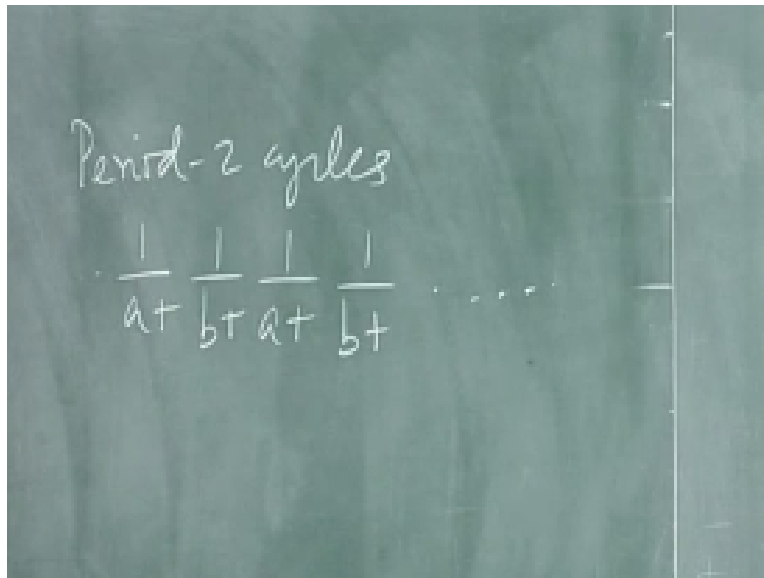 Period-2 cycles
1/a+ 1/b+ 1/a+ 1/b+ .....